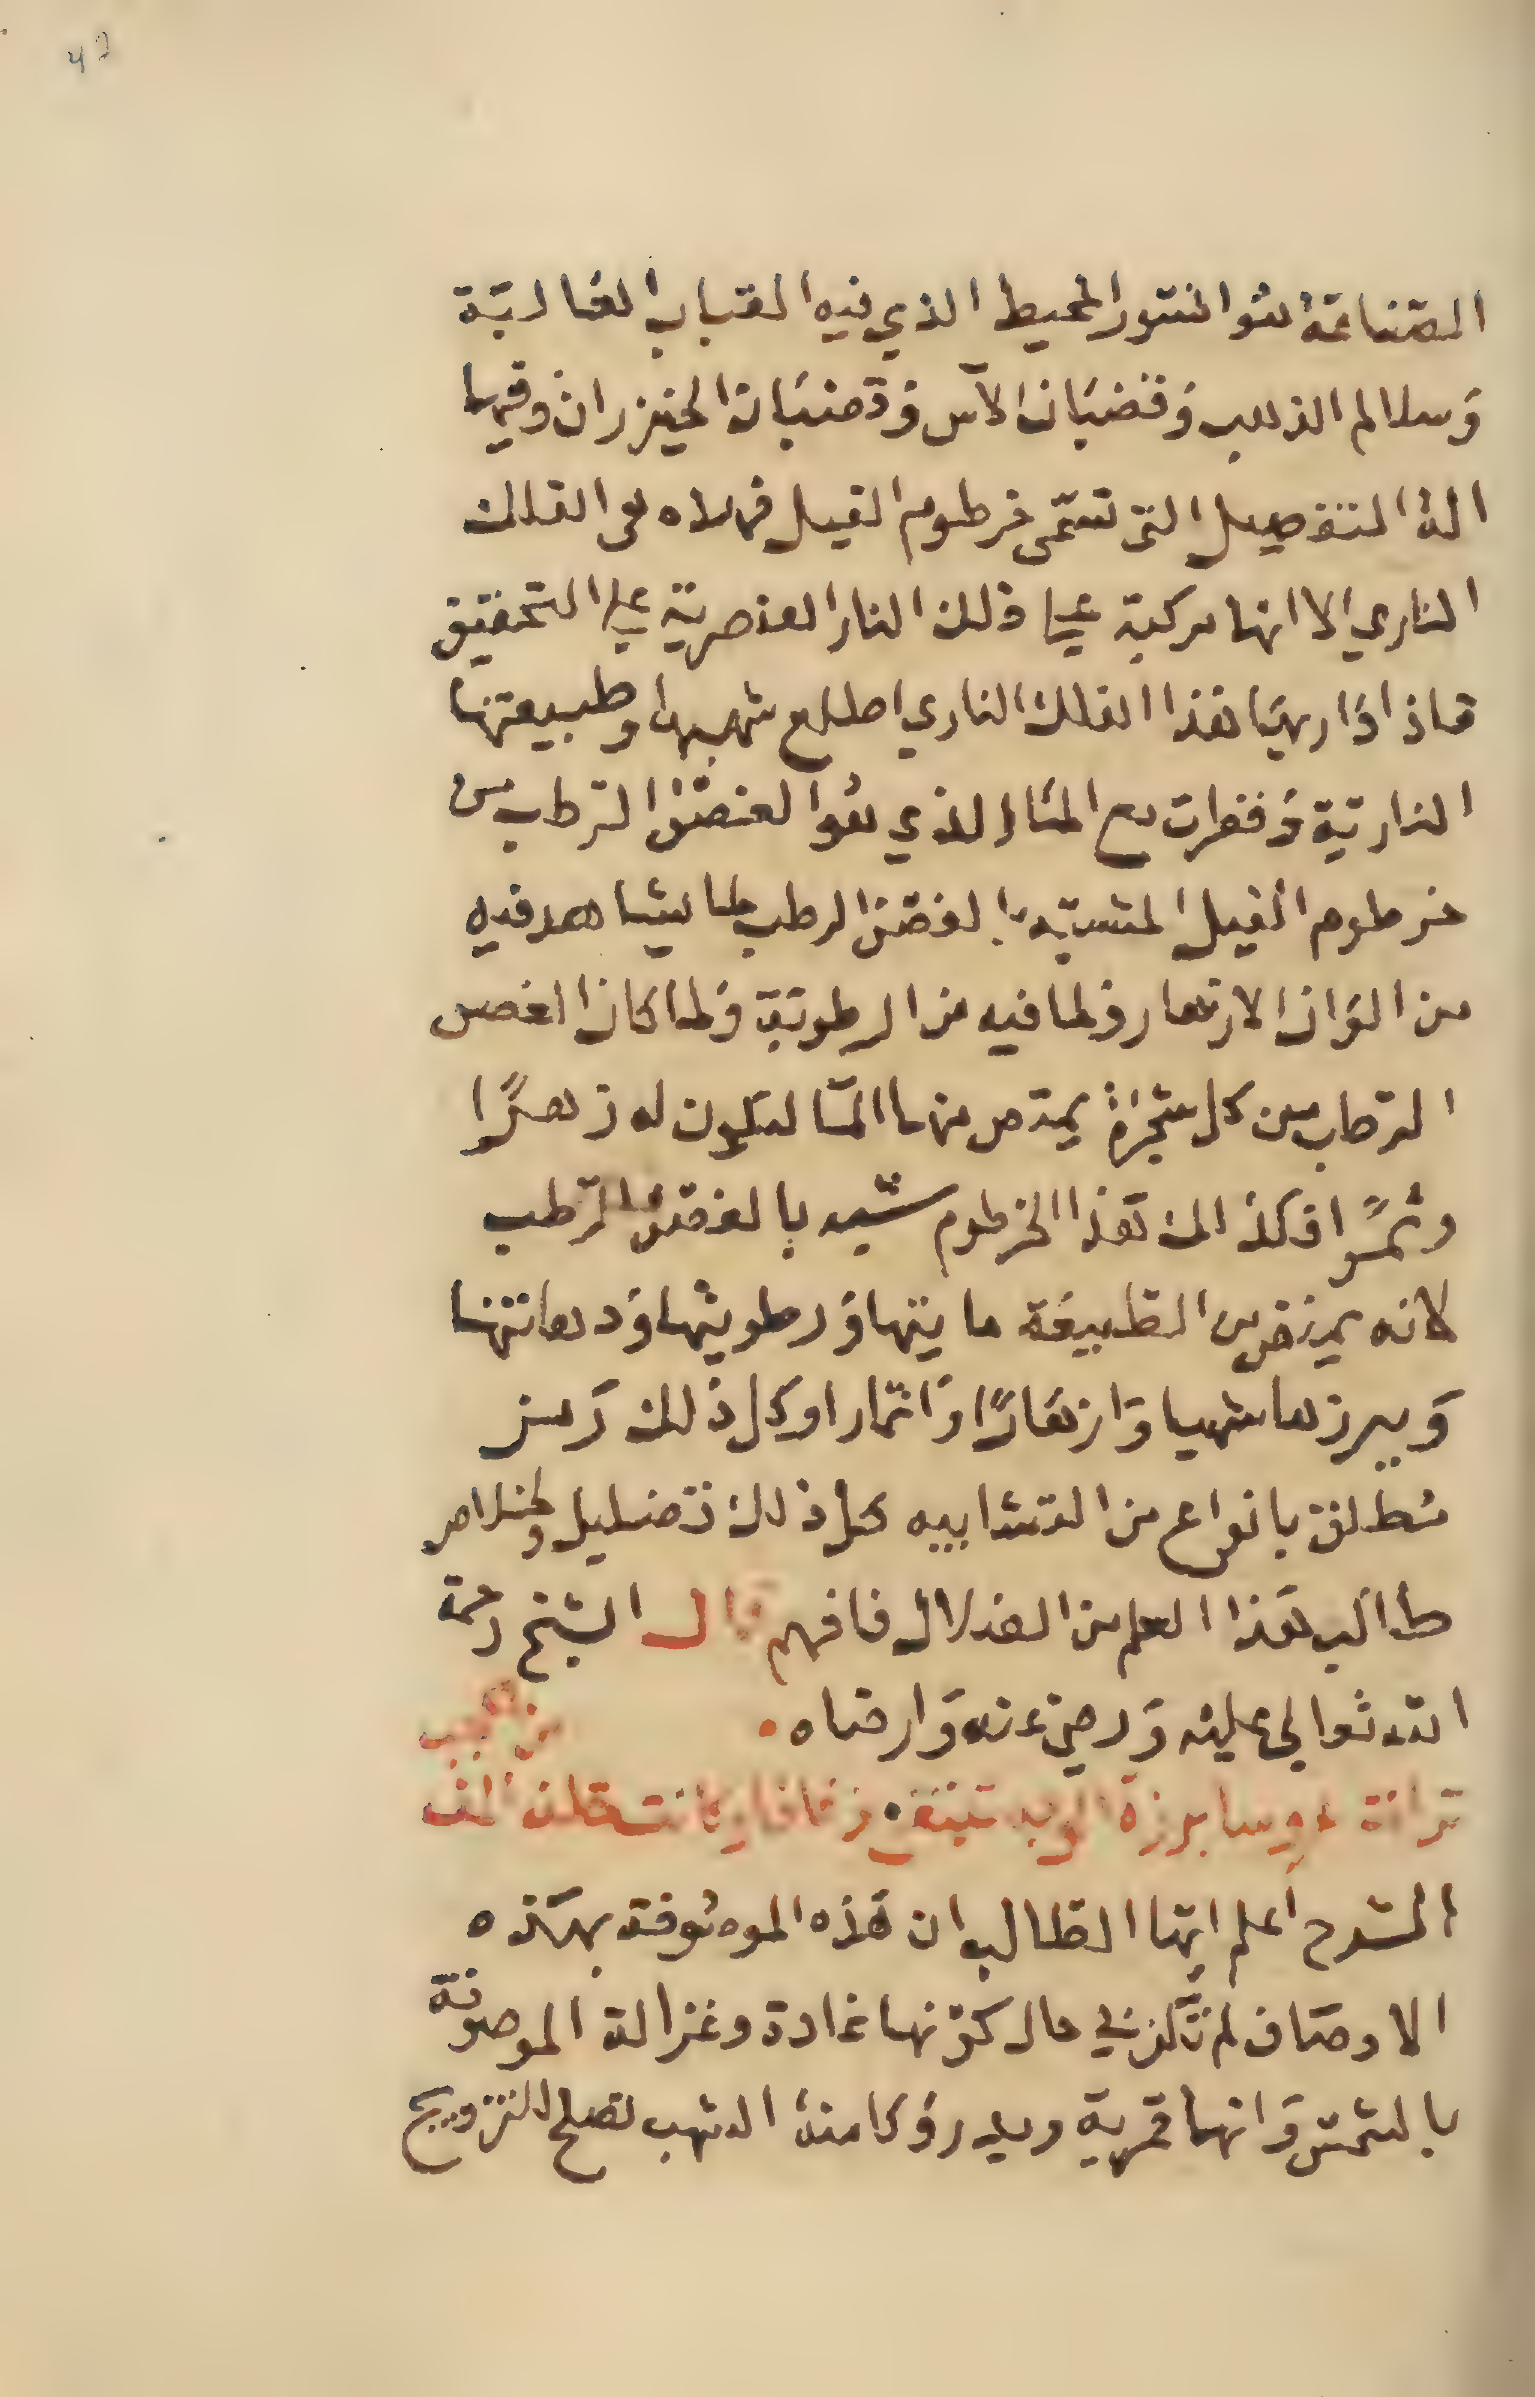 الصناعة هو السور المحيط الذي فيه القباب العالية
وسلالم الذهب وقضبان الآس وقضبان الخيزران وفيها
الة التفصيل التي تسمى خرطوم الفيل فهذه هي الفلك
الناري الا انها مركبة على فلك النار العنصرية على التحقيق
فاذا دار بها هذا الفلك الناري اطلع شهبها وطبيعتها
النارية وقطرات مع الماء الذي هو الغصن الرطب من
خرطوم الفيل المشبه بالغصن الرطب لما يشاهد فيه
من الوان الازهار ولما فيه من الرطوبة ولما كان الغصن
الرطب من كل شجرة يمتص منها الماء ليكون له زهرًا
وثمرًا فكذلك هذا الخرطوم شبيه بالغصن الرطب
لانه يمتص من الطبيعة مايتها ورطوبتها ودهانتها
ويبرزها شهبا وازهارًا واثمارا وكل ذلك رمز
مطلق بانواع من التشابيه كل ذلك تضليل
طالب هذا العلم من الضلال فافهم قال الشيخ رحمة
الله تعالى عليه ورضي عنه وارضاه
الشرح اعلم ايها الطالب ان هذه الموصوفة بهذه
الاوصاف لم تكن في حال كونها غادة وغزالة الموصوفة
بالشمس وانها قمرية وبدر وكامنة الشهب تصلح للتزويج
43